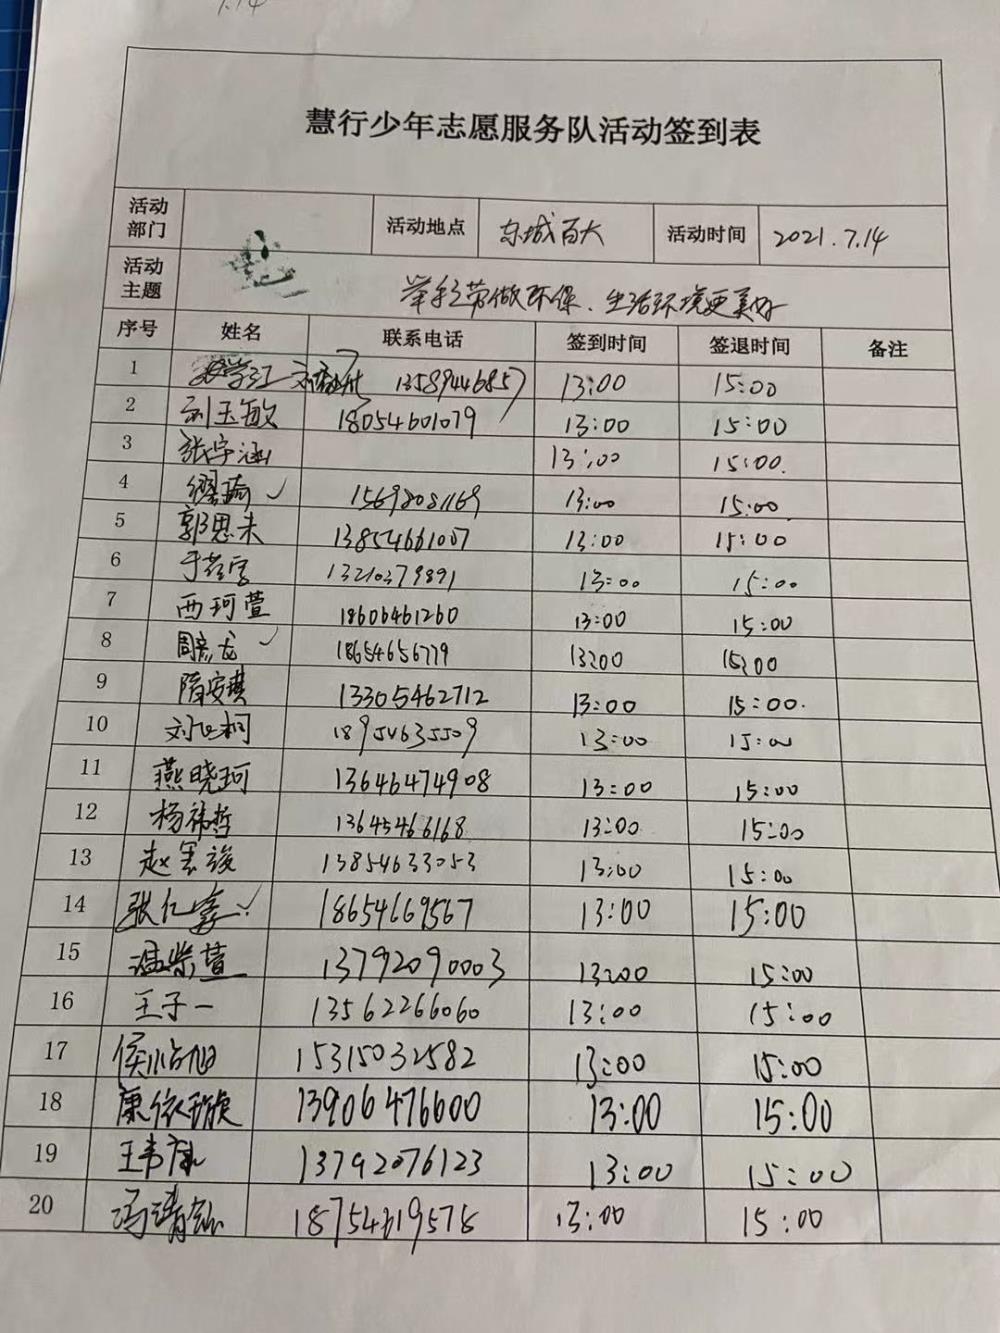 7.14
慧行少年志愿服务队活动签到表
活动部门 活动地点 东城百大 活动时间 2021.7.14
活动主题 举手之劳做环保、生活环境更美好
序号 姓名 联系电话 签到时间 签退时间 备注
1 13589446857 13:00 15:00
2 刘玉敏 18054601079 13:00 15:00
3 张宇涵 13:00 15:00.
4 缪瑞 15698081169 13:00 15:00
5 郭思未 13854661007 13:00 15:00
6 13210379891 13:00 15:00
7 西珂萱 18606461260 13:00 15:00
8 周彦龙 18654656779 13:00 15:00
9 隋安琪 13305462712 13:00 15:00.
10 18954635509 13:00 15:00
11 燕晓珂 13646474908 13:00 15:00
12 杨祎哲 13645466168 13:00 15:00
13 13854633053 13:00 15:00
14 张仁嘉 18654669567 13:00 15:00
15 温紫萱 13792090003 13:00 15:00
16 王子一 13562266060 13:00 15:00
17 15315032582 13:00 15:00
18 康依璇 13906476600 13:00 15:00
19 王韦康 13792076123 13:00 15:00
20 冯靖 13:00 15:00